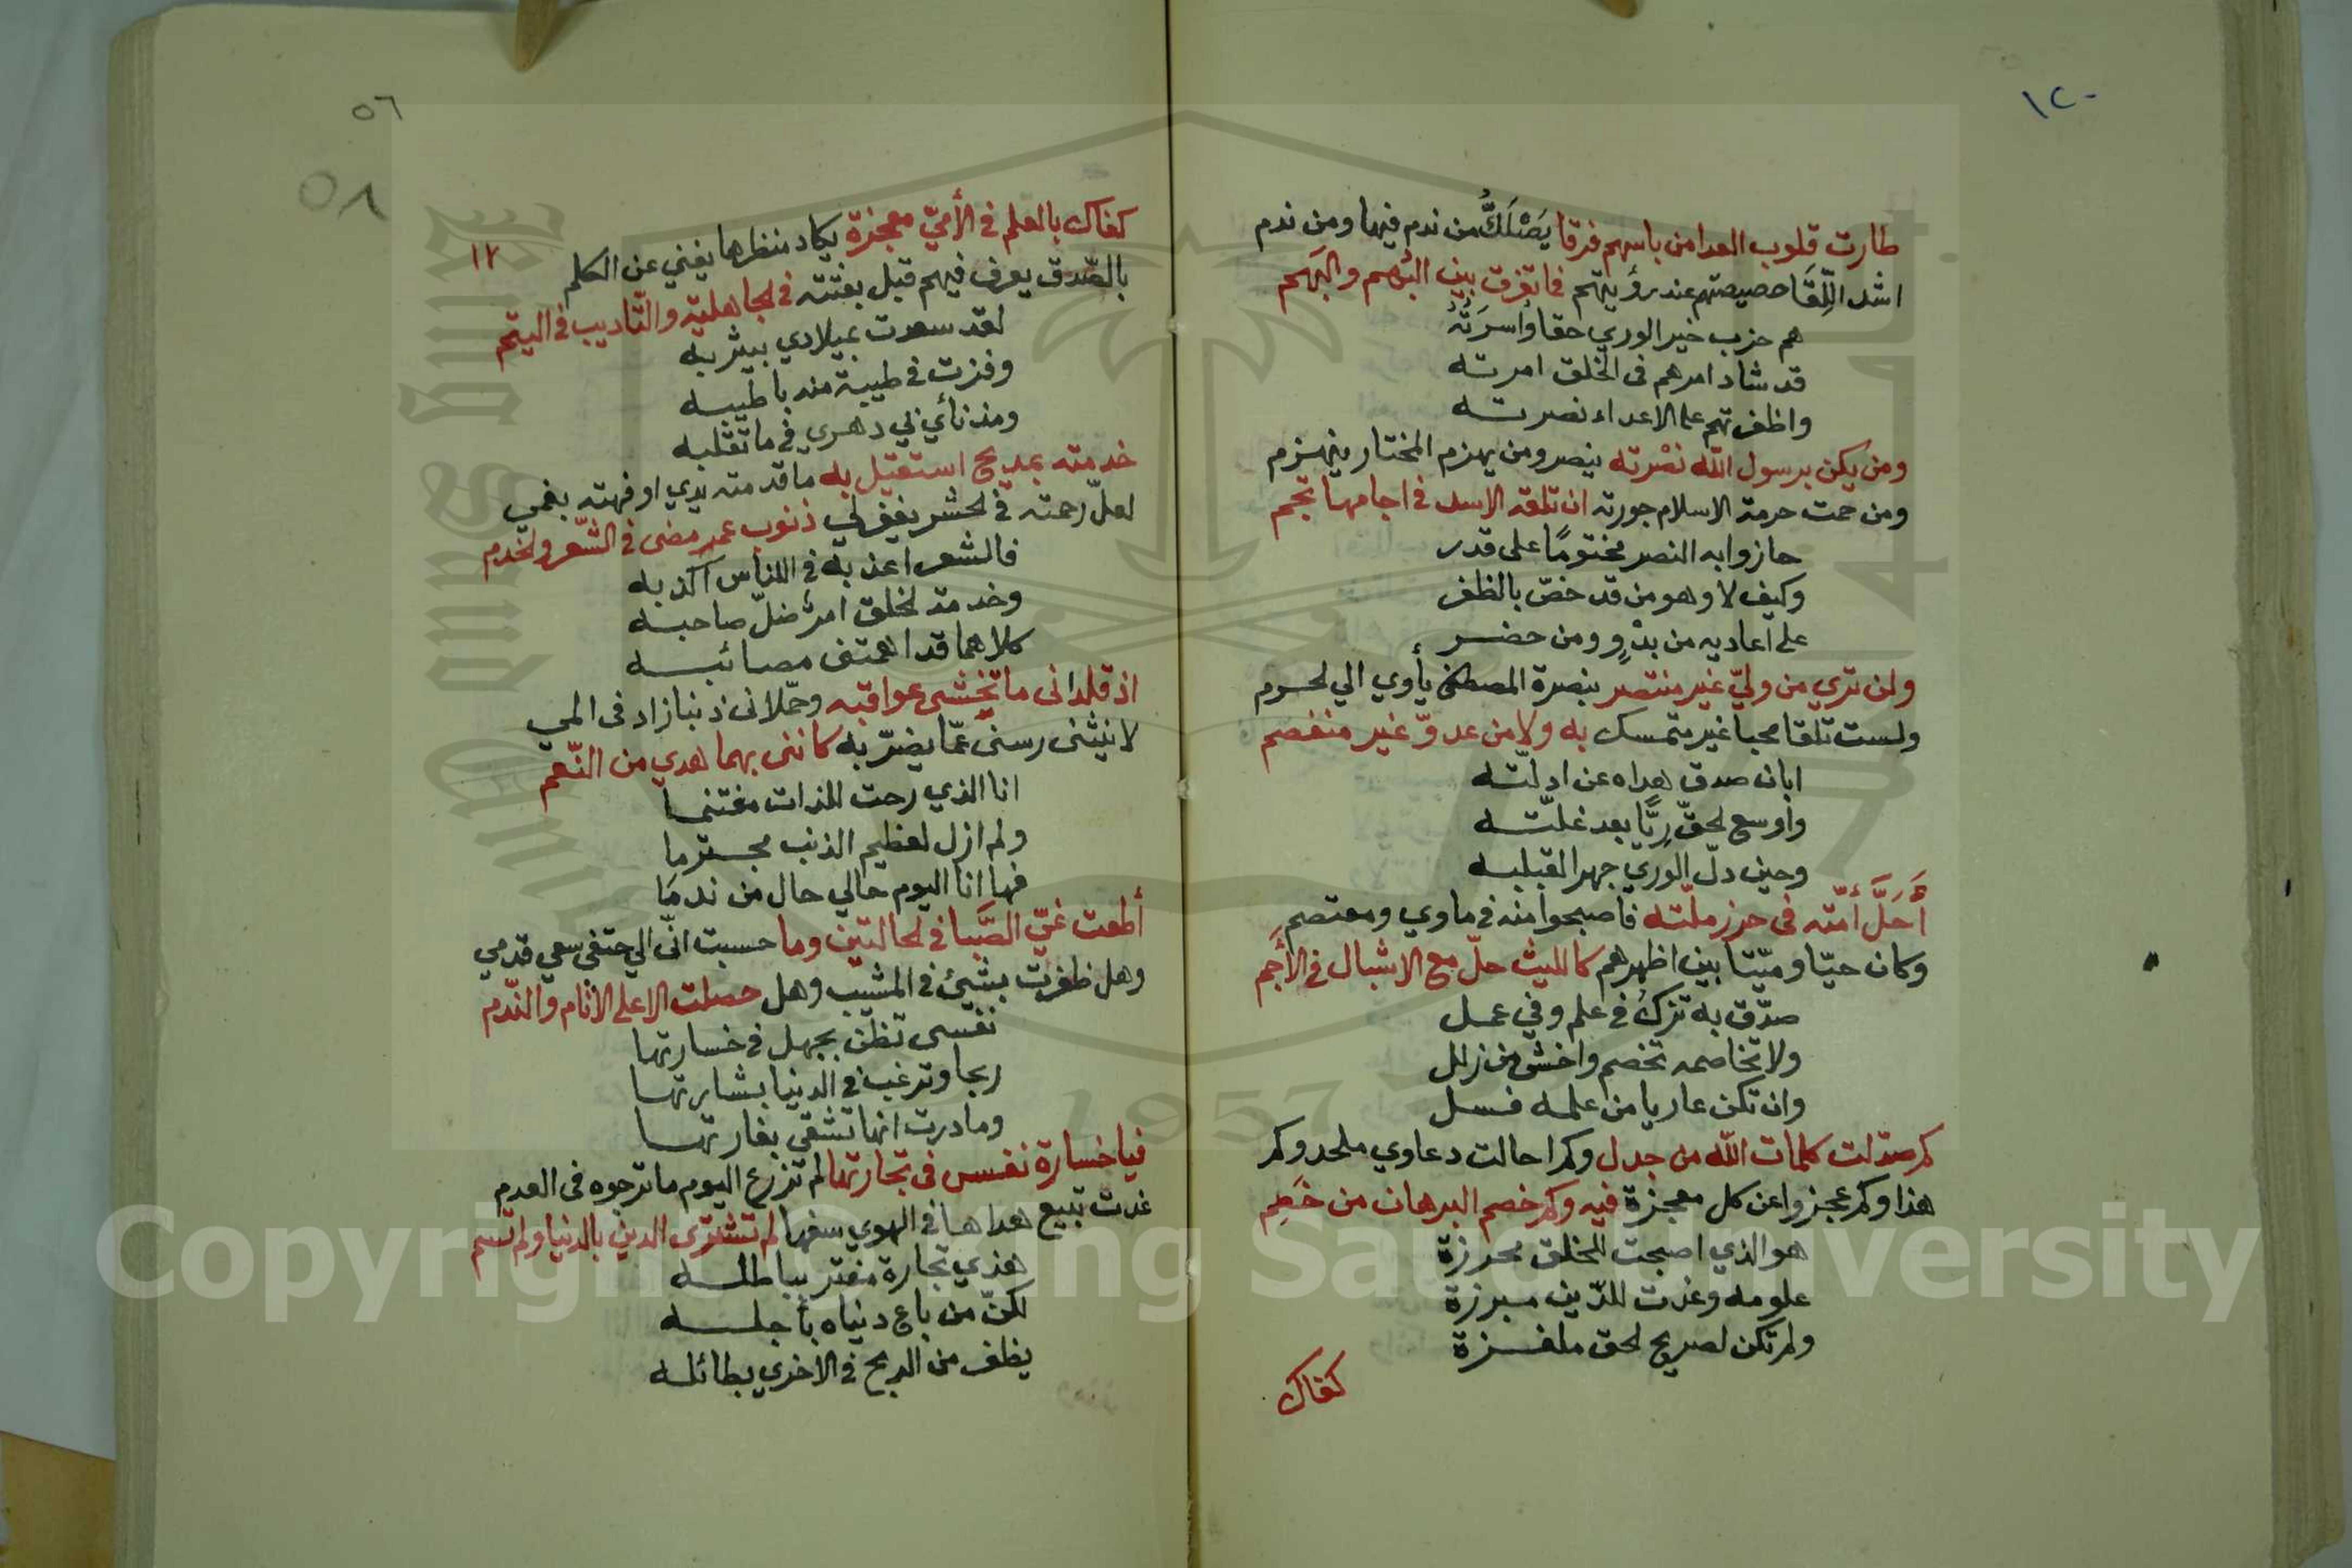 ١٢٠
طارت قلوب العدا من باسهم فرقا يَصْلَكُّ من ندم فيها ومن ندم
اشد اللِّقَا حصيصتهم عند رؤيتهم فا تفرق بين البُهم والبَهم
هم حزب خير الوري حقا واُسرَتُهُ
قد شاد امرهم فى الخلق امرته
واظفرتهم علا الاعداء نصرته
ومن يكن برسول اللّه نصْرته ينصر ومن يهزم المختار ينهزم
ومن حمت حرمة الاسلام جورته ان تلقه الاسد فى اجامها تجم
حازوا به النصر مختومًا على قدر
وكيف لا وهو من قد خصّ بالظفر
على اعاديه من بدْوٍ ومن حضر
ولن تري من وليّ غير منتصر بنصرة المصطفى يأوي الي لحرم
ولست تلقا محبا غير متمسك به ولا من عدوّ غير منفصم
ابان صدق هداه عن ادلّته
واوسع لحقّ رِيًّا بعد غلّته
وحين دلّ الوري جهرا لقبلبه
أَحَلَّ أمّته فى حرز ملّته فاصبحوا منه فى ماوي ومعتصم
وكان حيّا وميّتا بين اظهرهم كالليث حلّ مع الاشبال فى الأجم
صدّق به تزكُ فى علم وفي عمل
ولا تخاصمه تخصم واخش من زلل
وان تكن عاريا من علمه فسل
كم صدّلت كلمات اللّه من جدل وكم احالت دعاوي ملحد وكم
هذا وكم عجزوا عن كل معجزة فيه وكم خصم البرهان من خَصِم
هو الذي اصبحت للخلق محرزة
علومه وغدت للدّين مبرزة
ولم تكن لصريح لحق ملغزة
كفاك
٥٦
٥٨
كفاك بالعلم فى الأميّ معجزة يكاد منظرها يغني عن الكلم
١٢
بالصّدق يعرف فيهم قبل بعثته فى لجاهلية والتّاديب فى اليتم
لقد سعدت بميلادي بيثربه
وفزت فى طيبة منه باطيبه
ومذ نأي بي دهري فى ما تقلبه
خدمته بمديح استقيل به ما قدمته يدي او فهته بفمي
لعلّ رحمته فى لحشر يغفر لي ذنوب عمر مضى فى الشّعر ولخدم
فالشعر اعذبه فى للناس اكذبه
وخدمة لخلق امر ضلّ صاحبه
كلاهما قد اهمتنى مصائبه
اذ قلدانى ما تخشى عواقبه وحمّلانى ذنبا زاد فى المي
لا ينثنى رسنى عمّا يضرّ به كاننى بهما هدي من النّعم
انا الذي رحت للذات مغتنما
ولم ازل لعظيم الذنب مجترما
فها انا اليوم حالي حال من ندمَا
أطعت غيّ الصَّبا فى لحالتين وما حسبت انّ الي حتفى سعي قدمي
وهل ظفرت بشيئ فى المشيب وهل حصلت الا على الاثام والنّدم
نفسى تظن بجهل فى خسارتها
ربحا وترغب فى الدنيا بشارتها
وما درت انها تشقى بغارتها
فيا خسارة نفس فى تجارتها لم تزرع اليوم ما ترجوه فى العدم
غدت تبيع هداها فى الهوي سفها لم تشترى الدين بالدنيا ولم تسم
هذي تجارة مغتر بباطله
لكنّ من باع دنياه بأجله
يظفر من الربح فى الاخري بطائله
Copyright © King Saud University
1957